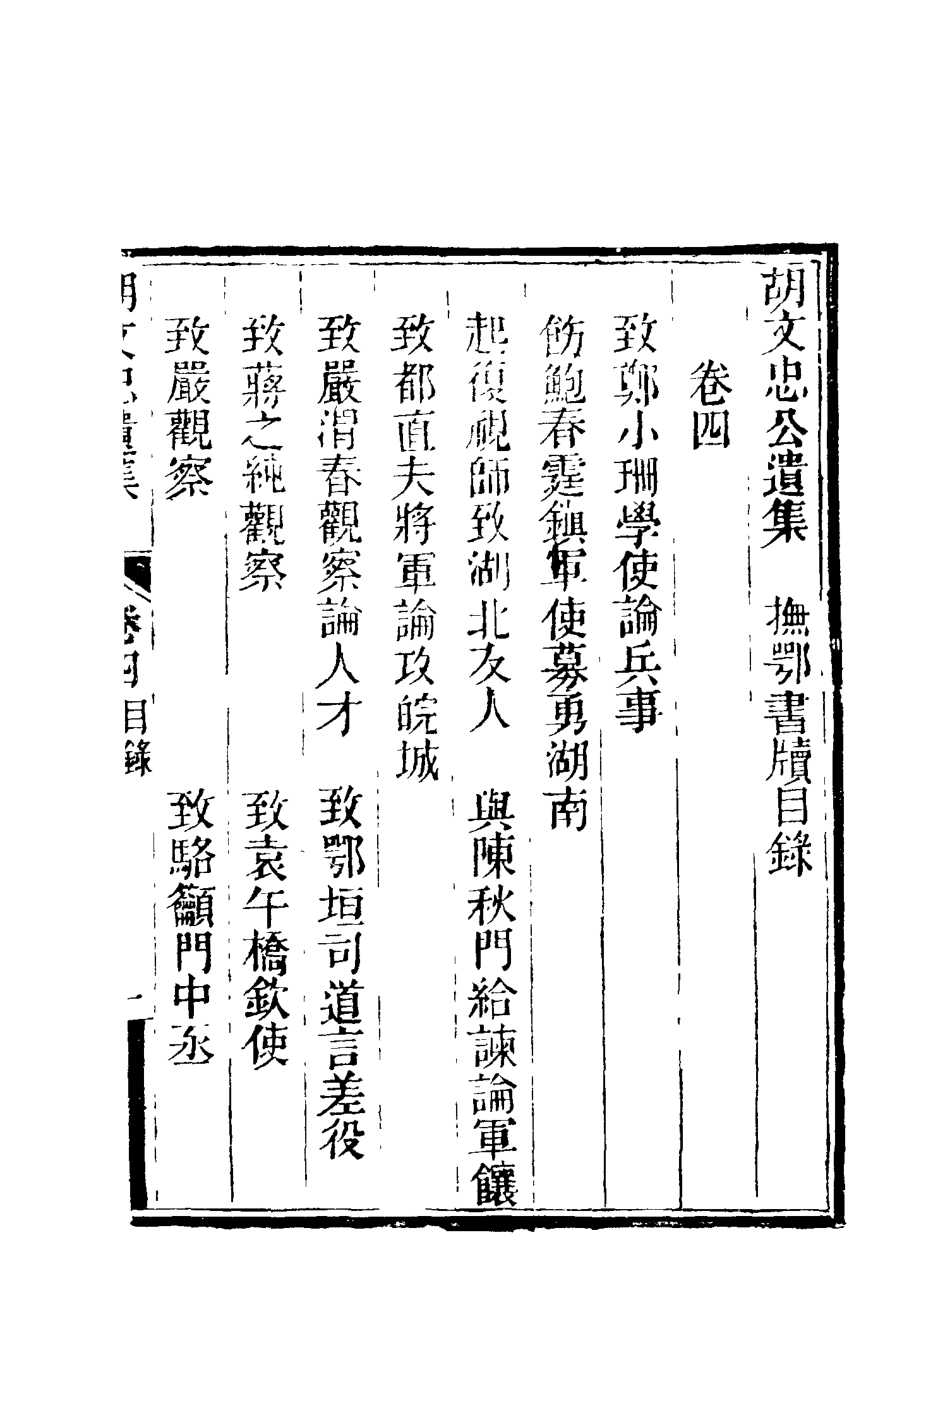 胡文忠公遺集　撫鄂書牘目錄
卷四
致鄭小珊學使論兵事
飭鮑春霆鎭軍使募勇湖南
起復視師致湖北友人　與陳秋門給諫論軍饟
致都直夫將軍論攻皖城
致嚴渭春觀察論人才　致鄂垣司道言差役
致蔣之純觀察　致袁午橋欽使
致嚴觀察　致駱籲門中丞
胡文忠遺集　卷四目錄　一